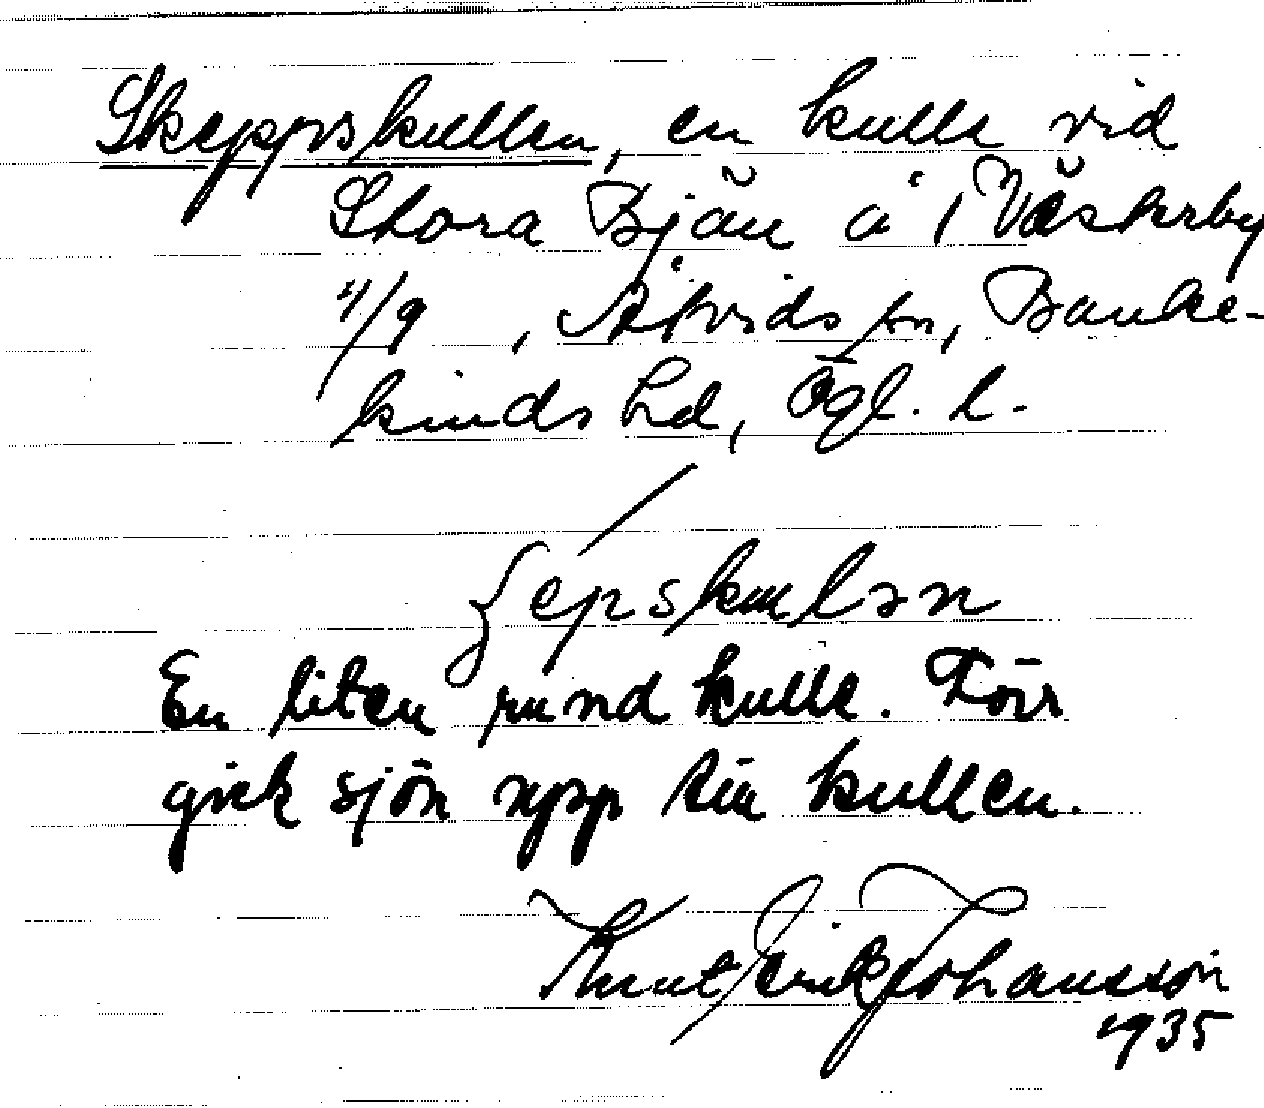 Skeppskullen, en kulle vid
Stora Bjän å, Västerby
4/9, Åtvids sn, Banke-
kinds hd, Ögl. l.
ʃepskulən
En liten rund kulle. Förr
gick sjön upp till kullen.
Knut Erik Johansson
1935